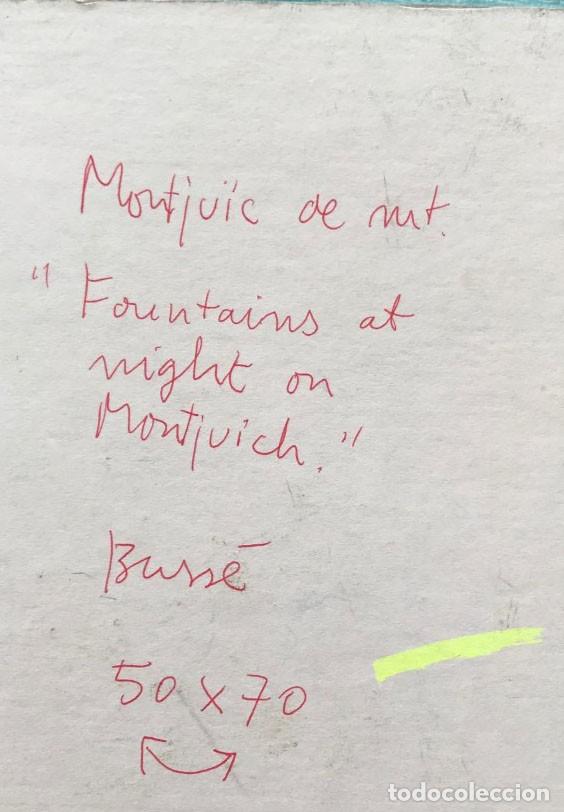 Montjuïc de nit.
"Fountains at
night on
Montjuich."
Bussé
50 x 70
todocoleccion